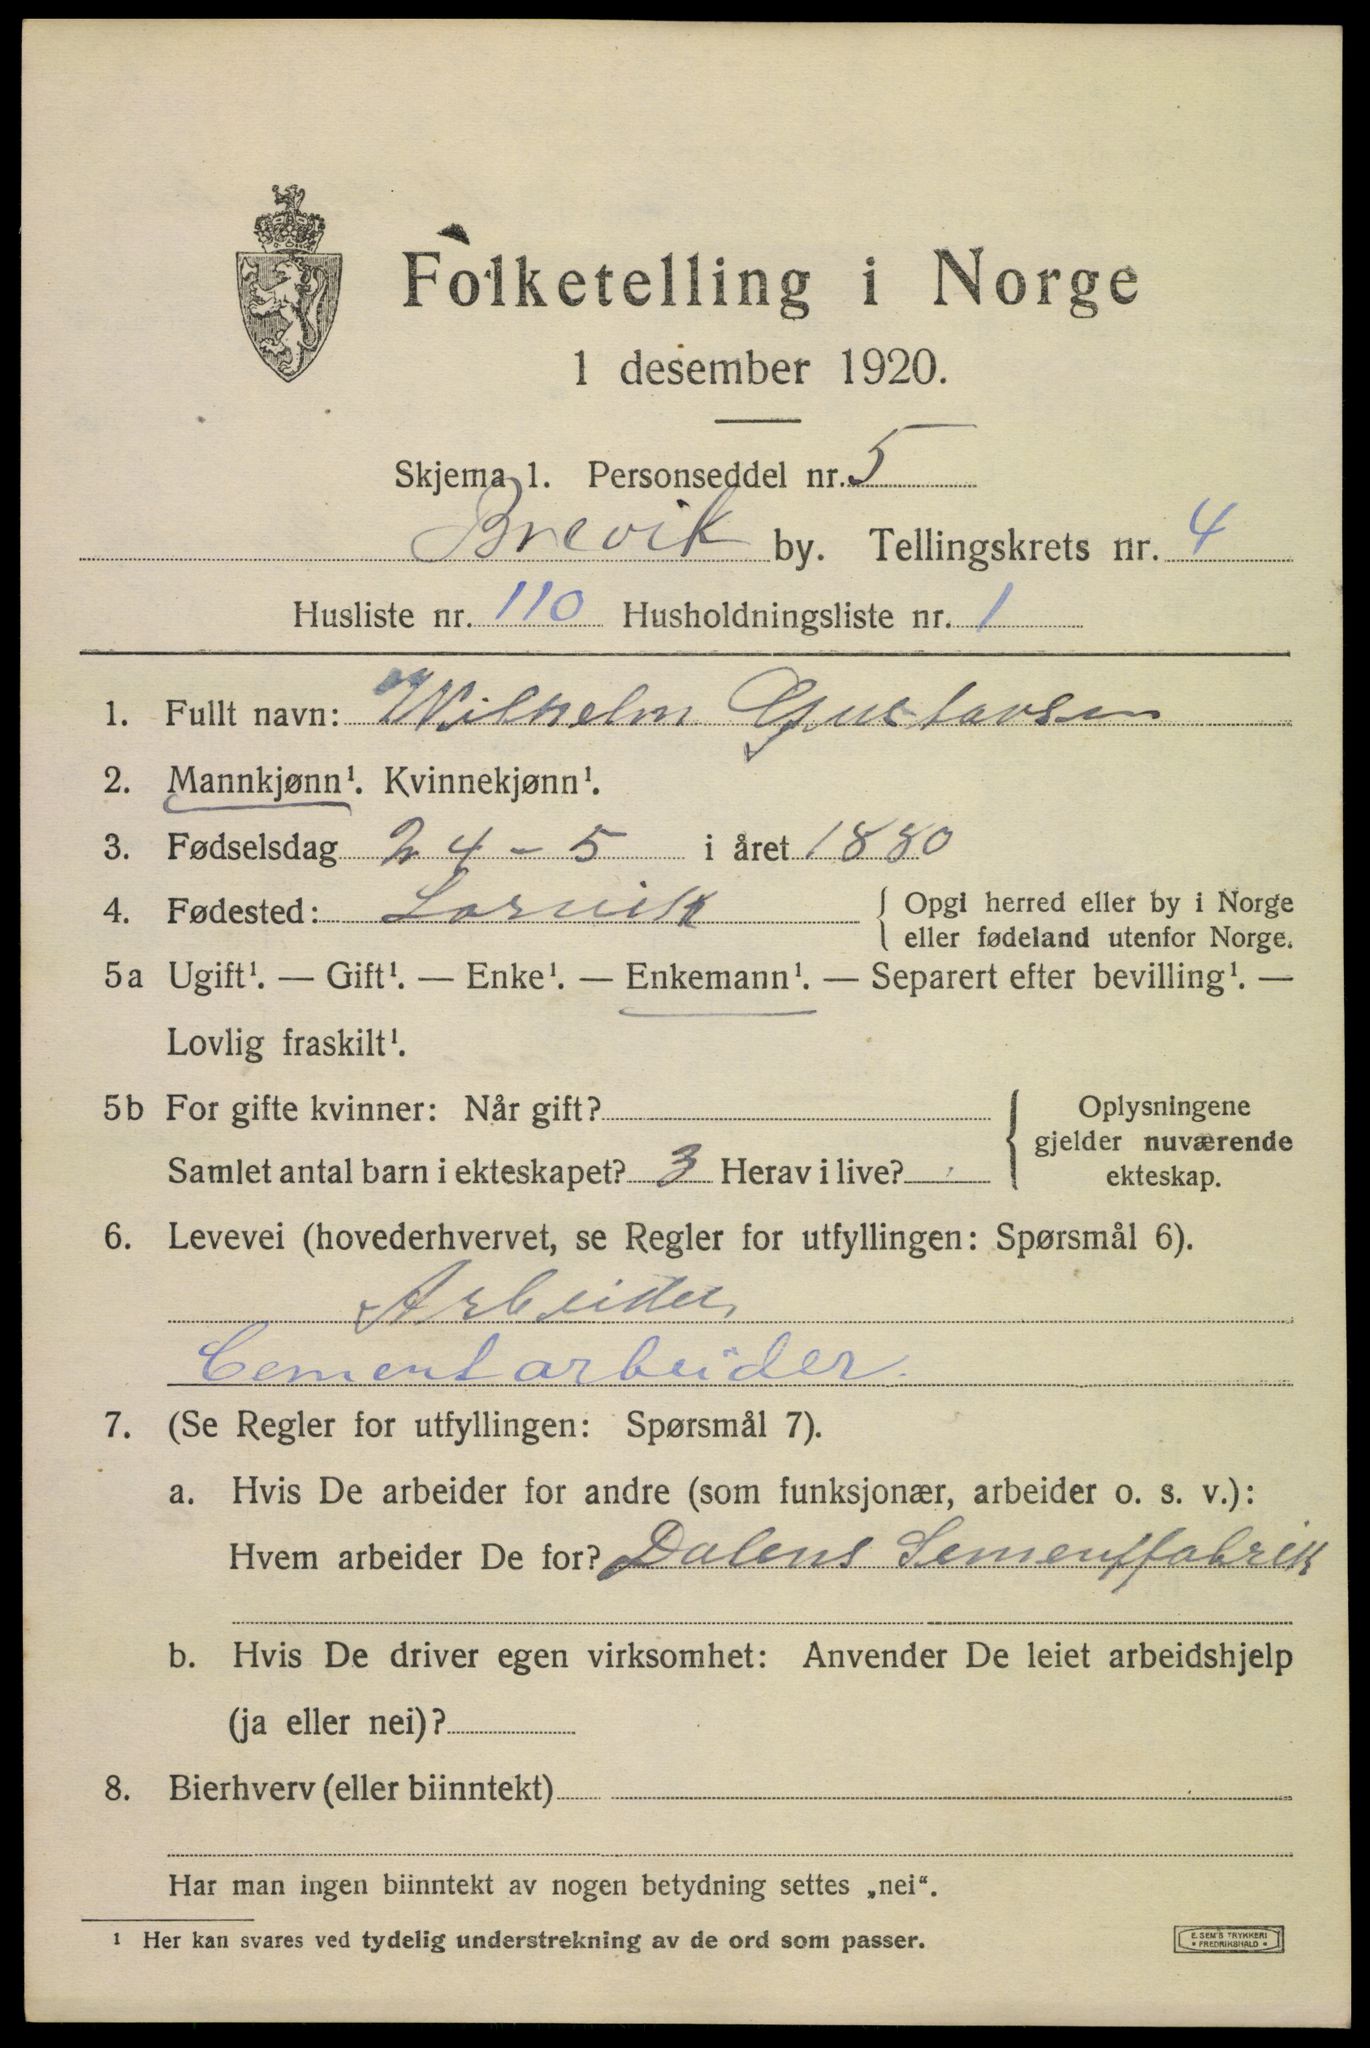 Folketelling i Norge
1 desember 1920.
Skjema 1. Personseddel nr. 5
Brevik by. Tellingskrets nr. 4
Husliste nr. 110 Husholdningsliste nr. 1
1. Fullt navn: Wilhelm Gustavsen
2. Mannkjønn¹. Kvinnekjønn¹.
3. Fødselsdag 24-5 i året 1880
4. Fødested: Larvik { Opgi herred eller by i Norge
eller fødeland utenfor Norge.
5a Ugift¹. — Gift¹. — Enke¹. — Enkemann¹. — Separert efter bevilling¹. —
Lovlig fraskilt¹.
5b For gifte kvinner: Når gift? { Oplysningene
gjelder nuværende
Samlet antal barn i ekteskapet? 3 Herav i live? ekteskap.
6. Levevei (hovederhvervet, se Regler for utfyllingen: Spørsmål 6).
Arbeider
Cementarbeider.
7. (Se Regler for utfyllingen: Spørsmål 7).
a. Hvis De arbeider for andre (som funksjonær, arbeider o. s. v.):
Hvem arbeider De for? Dalens Sementfabrik
b. Hvis De driver egen virksomhet: Anvender De leiet arbeidshjelp
(ja eller nei)?
8. Bierhverv (eller biinntekt)
Har man ingen biinntekt av nogen betydning settes „nei“.
¹ Her kan svares ved tydelig understrekning av de ord som passer.
E. SEM'S TRYKKERI
* FREDRIKSHALD *